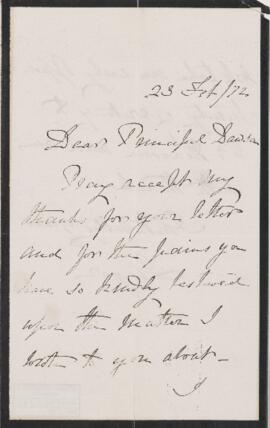 23 Feb/72
Dear Principal Dawson
Pray accept my
thanks for your letter
and for the pains you
have so kindly bestowed
upon the matter I
wrote to you about -
I